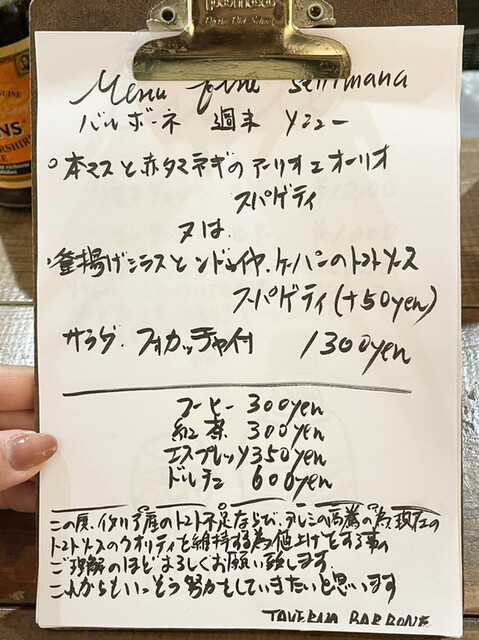 Menu fine settimana
バルボーネ 週末 メニュー
○本マスと赤タマネギのアーリオエオーリオ
スパゲティ
又は
・釜揚げシラスとンドゥイヤ、ケッパーのトマトソース
スパゲティ(+50yen)
サラダ・フォカッチャ付 1300yen
コーヒー 300yen
紅茶 300yen
エスプレッソ 350yen
ドルチェ 600yen
この度、イタリア産のトマト不足ならび、アルミの高騰の為、現在の
トマトソースのクオリティを維持する為値上げとする事の
ご理解のほどよろしくお願い致します。
これからもいっそう努力をしていきたいと思います
TAVERNA BARBONE